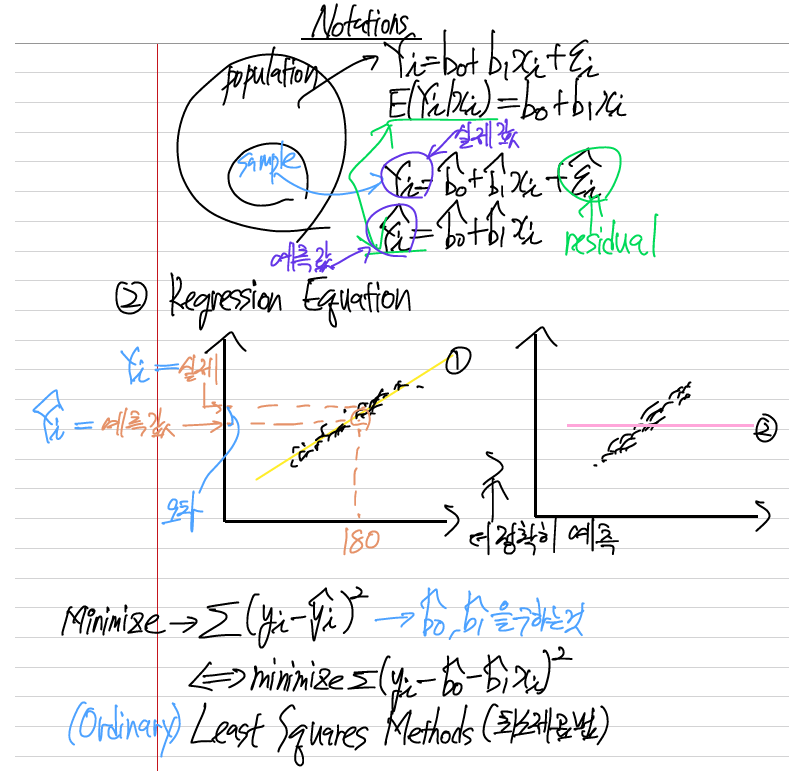 Notations
population
Yi = b0 + b1xi + εi
E(Yi|xi) = b0 + b1xi
실제값
sample
Yi = b̂0 + b̂1xi + ε̂i
Ŷi = b̂0 + b̂1xi
residual
예측값
② Regression Equation
①
Yi = 실제
Ŷi = 예측값
②
오차
180
>
더 정확히 예측
Minimize → Σ(yi - ŷi)² → b̂0, b̂1을 구하는것
⇔ minimize Σ(yi - b̂0 - b̂1xi)²
(Ordinary) Least Squares Methods (최소제곱법)